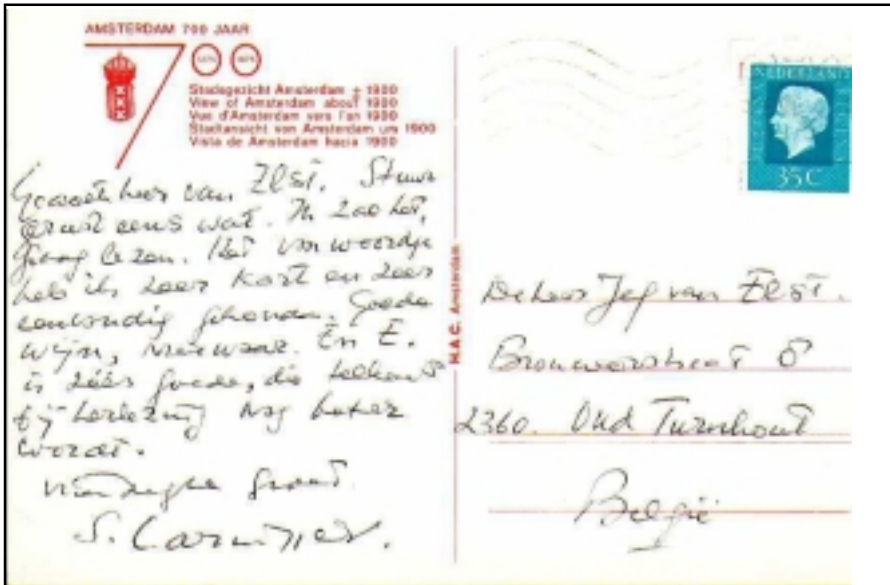 AMSTERDAM 700 JAAR
1275 1975
Stadsgezicht Amsterdam ± 1900
View of Amsterdam about 1900
Vue d'Amsterdam vers l'an 1900
Stadtansicht von Amsterdam um 1900
Vista de Amsterdam hacia 1900
Geachte heer van Elst. Stuur
gerust eens wat. Ik zou het,
graag lezen. Het voorwoordje
heb ik zeer kort en zeer
eenvoudig gehouden. Goede
wijn, nietwaar. En E.
is zéér goede, die telkens
bij herlezing nog beter
wordt.
Vriendelijke groet.
S. Carmiggelt.
H.A.C. Amsterdam
NEDERLAND
35 C
De heer Jef van Elst.
Brouwerstraat 8
2360. Oud Turnhout
België